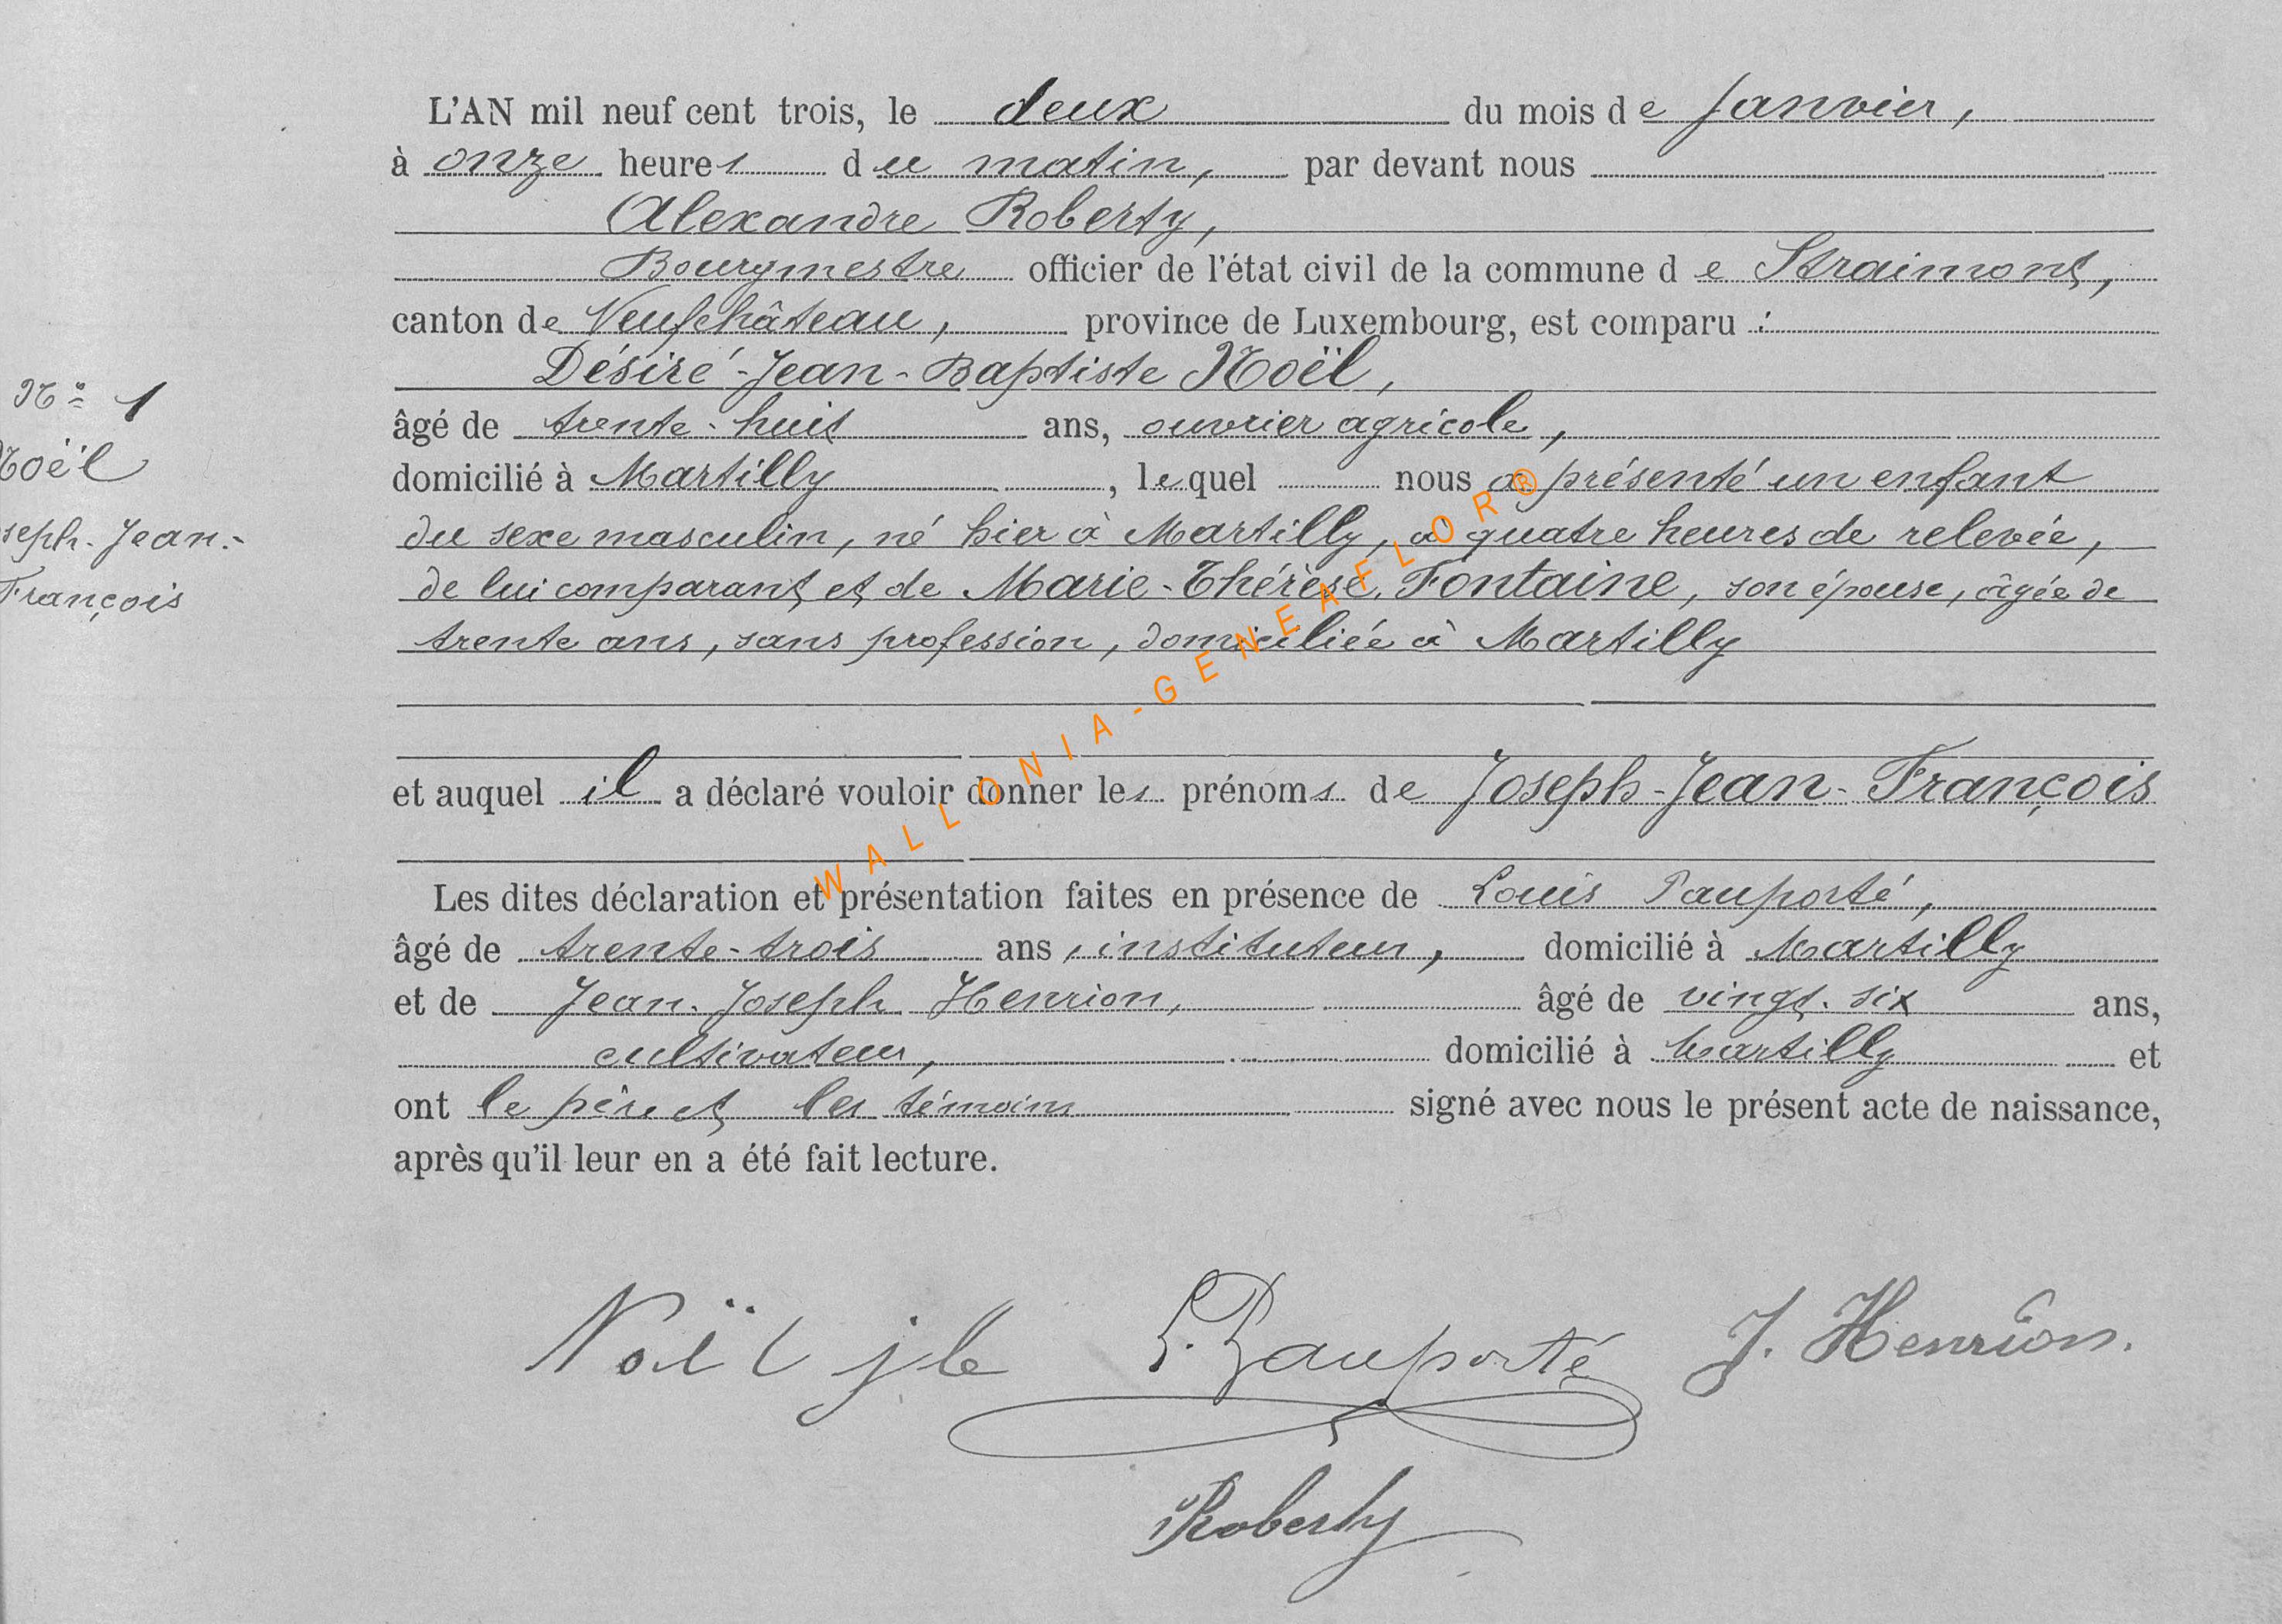 L'AN mil neuf cent trois, le deux du mois de Janvier,
à onze heures du matin, par devant nous
Alexandre Roberty,
Bourgmestre officier de l'état civil de la commune de Straimont,
canton de Neufchâteau, province de Luxembourg, est comparu :
Désiré-Jean-Baptiste Noël,
âgé de trente-huit ans, ouvrier agricole,
domicilié à Martilly, lequel nous a présenté un enfant
du sexe masculin, né hier à Martilly, à quatre heures de relevée,
de lui comparant et de Marie-Thérèse Fontaine, son épouse, âgée de
trente ans, sans profession, domiciliée à Martilly
et auquel il a déclaré vouloir donner les prénoms de Joseph-Jean-François
Les dites déclaration et présentation faites en présence de Louis Pauporté,
âgé de trente-trois ans, instituteur, domicilié à Martilly
et de Jean-Joseph Henrion, âgé de vingt-six ans,
cultivateur, domicilié à Martilly et
ont le père et les témoins signé avec nous le présent acte de naissance,
après qu'il leur en a été fait lecture.
N° 1
Noël
seph-Jean-
François
WALLONIA-GENEAFLOR®
Noël jb
L. Pauporté
J. Henrion.
Roberty